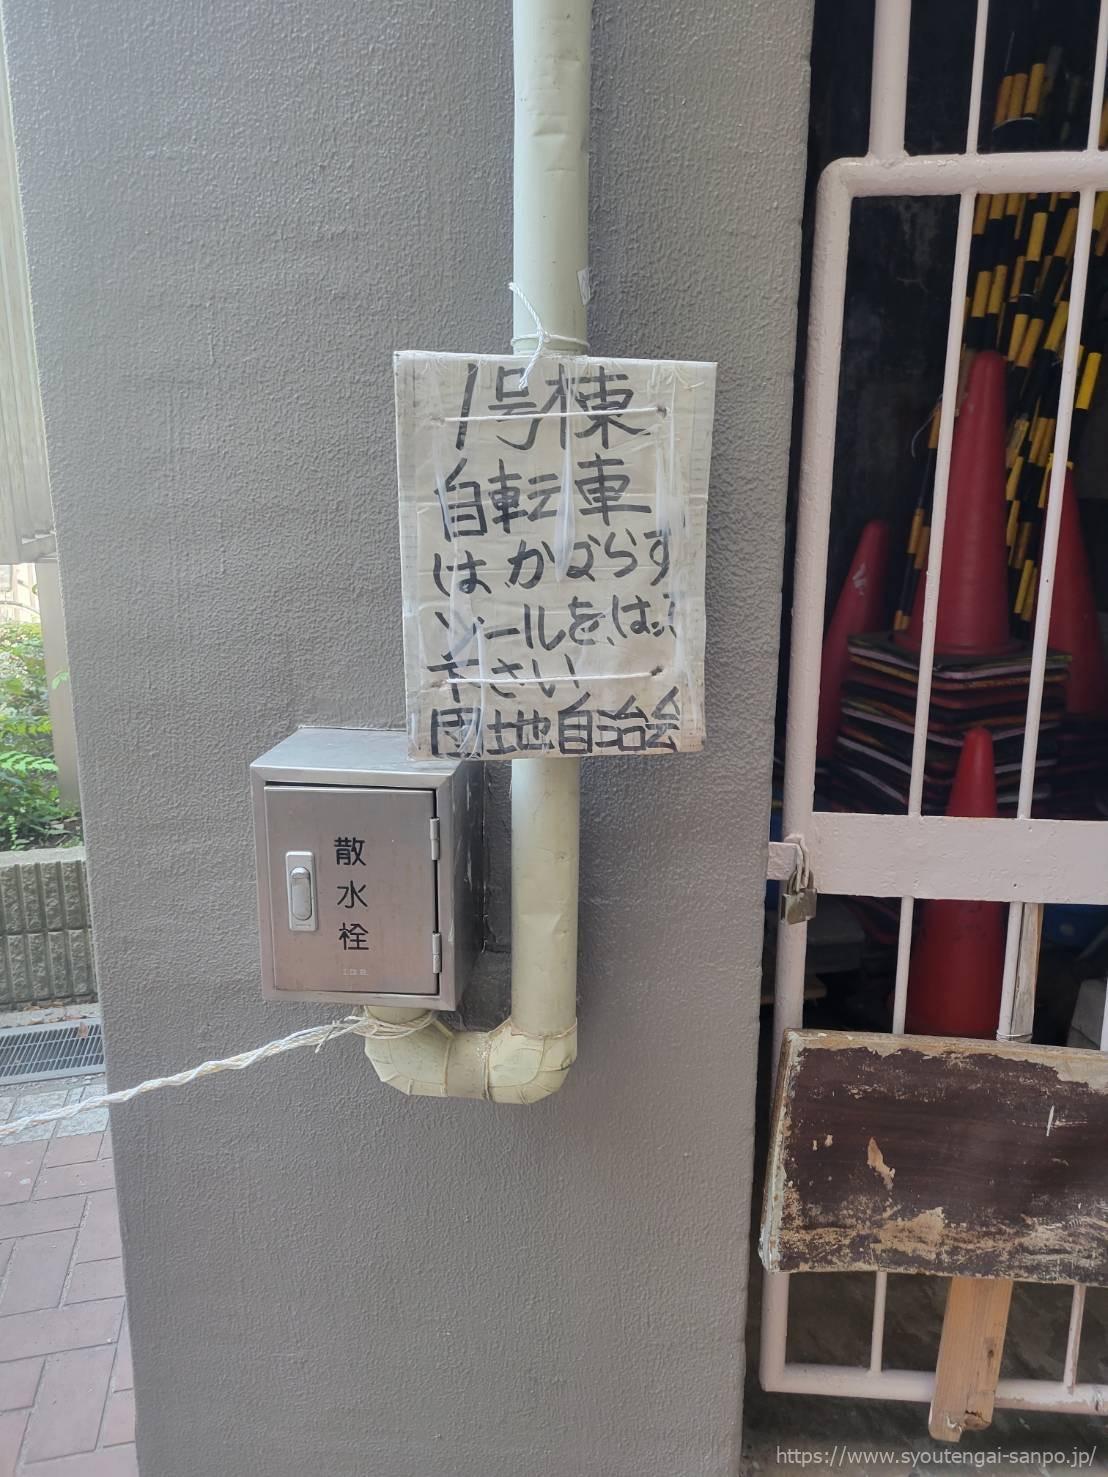 1号棟
自転車
はかならず
シールをはって
下さい
団地自治会
散
水
栓
https://www.syoutengai-sanpo.jp/